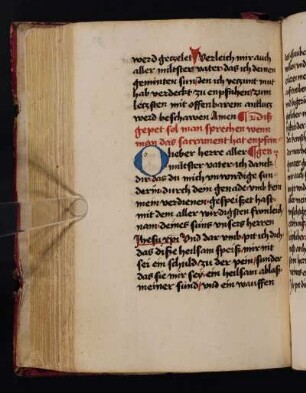 werd getzelet Verleich mir auch
aller miltster vater das ich deinen
geminten sun den ich yetzunt mut
hab verdeckt zu enpfahen zum
letzsten mit offenbarem antlutz
werd beschawen Amen Ditz
gepet sol man sprechen wenn
man das sacrament hat enpfan
O lieber herre aller gen
miltster vater ich danck
dir das du mich unwirdige sun
derin durch dein genade und kein
mein verdienen gespeiszet hast
mit dem aller wirdigsten fronleich
nam deines suns unsers herren
Jhesu xpi Und dar umb pit ich dich
das disze heilsam speisz mir nit
sei ein schuld zu der pein sunder
das sie mir sey ein heilsam ablasz
meiner sund und ein wauffen